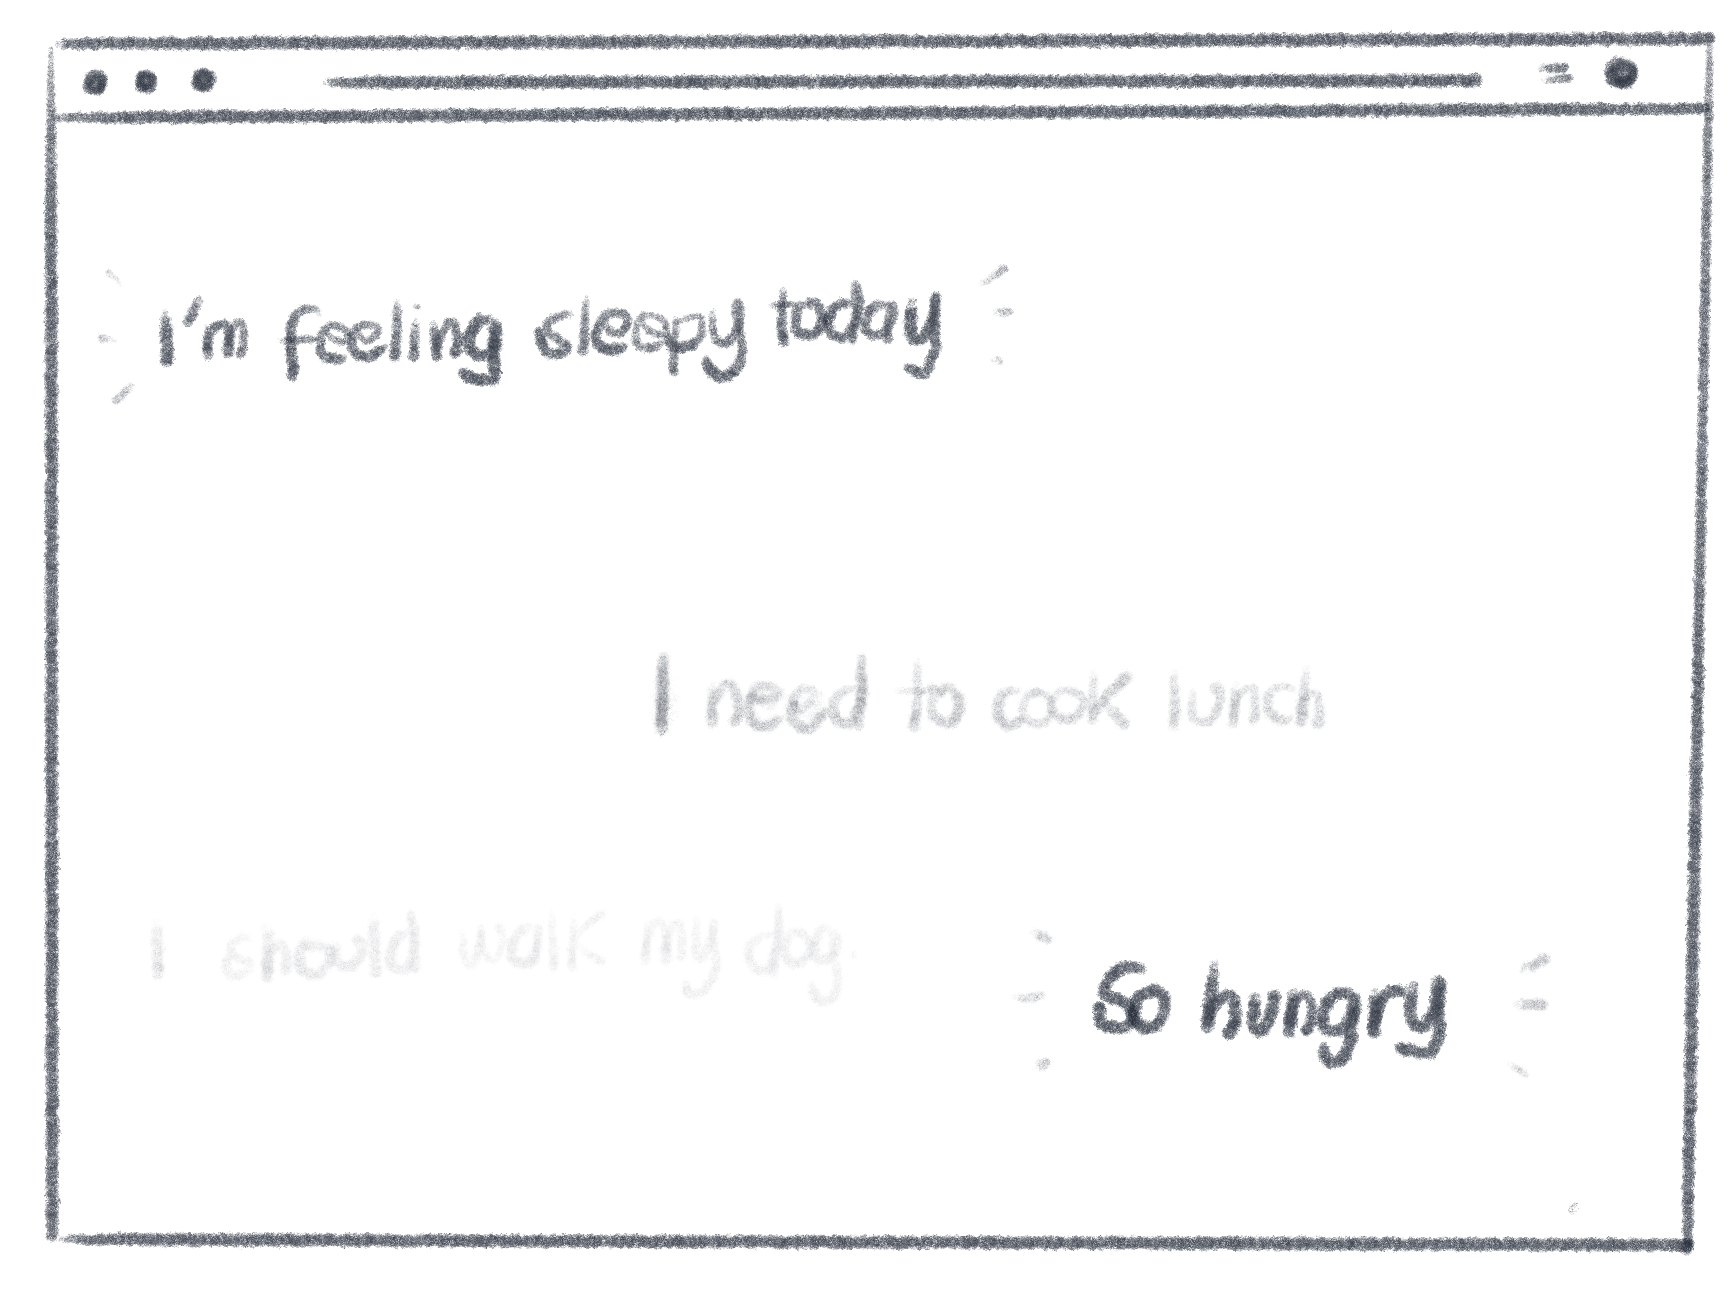 I'm feeling sleepy today
I need to cook lunch
I should walk my dog.
So hungry